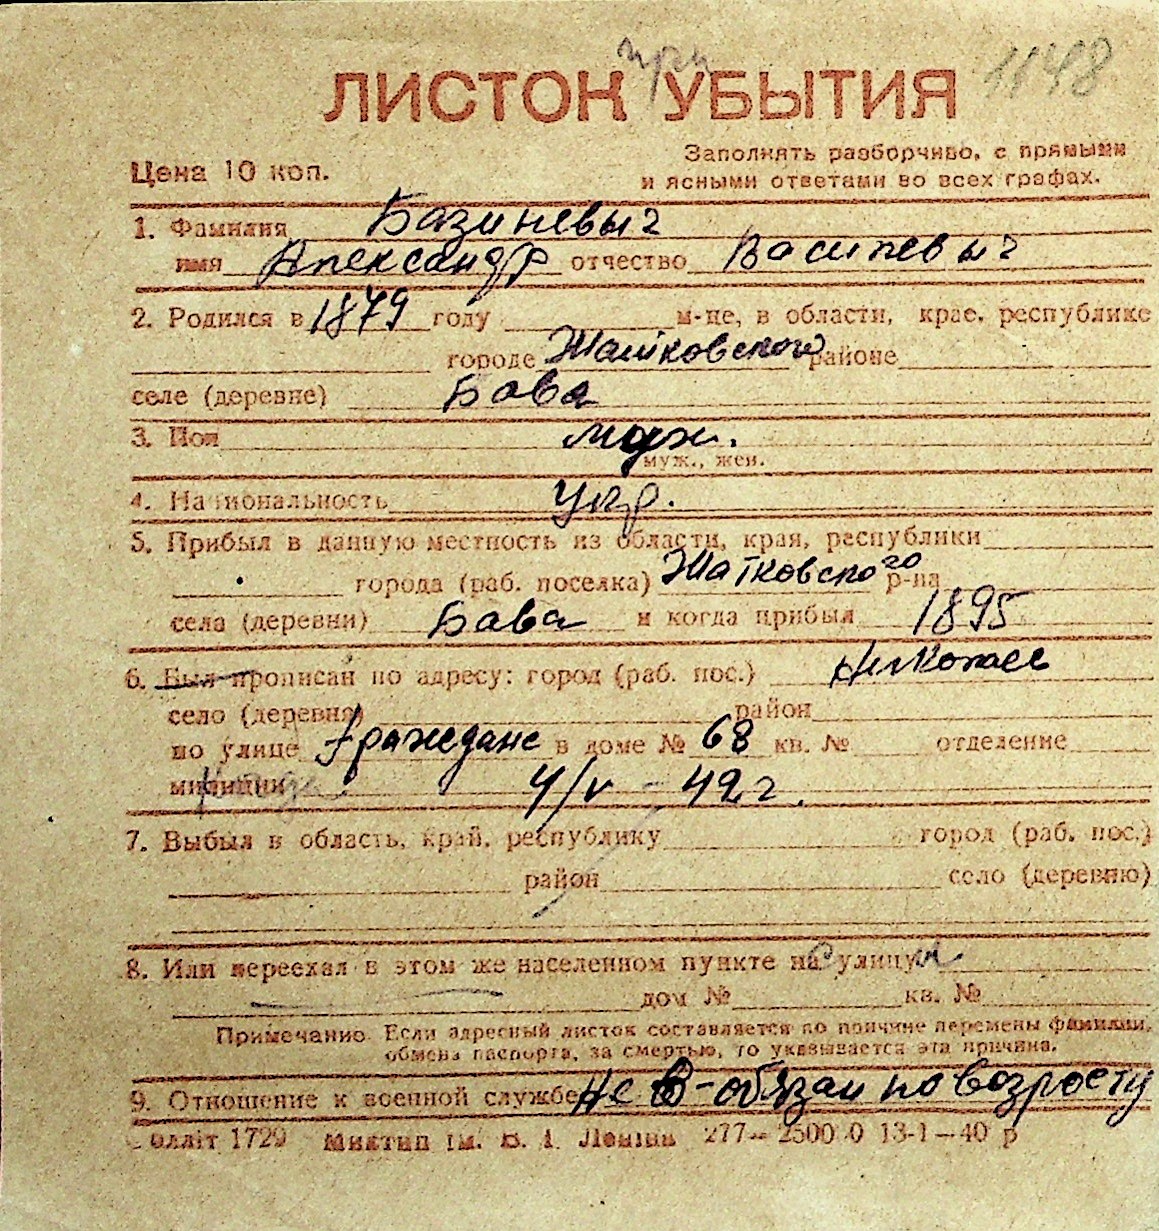 при 1148
ЛИСТОК УБЫТИЯ
Заполнять разборчиво, с прямыми
Цена 10 коп. и ясными ответами во всех графах.
1. Фамилия Базиневыч
имя Александр отчество Василевыч
2. Родился в 1879 году м-це, в области, крае, республике
городе Жашковского районе
селе (деревне) Бава
3. Пол муж.
муж., жен.
4. Национальность укр.
5. Прибыл в данную местность из области, края, республики
города (раб. поселка) Жатковского р-на
села (деревни) Бава и когда прибыл 1895
6. Был прописан по адресу: город (раб. пос.) Николаев
село (деревня) район
по улице Граждане в доме № 68 кв. № отделение
милиции 4/V - 42 г.
7. Выбыл в область, край, республику город (раб. пос.)
район село (деревню)
8. Или переехал в этом же населенном пункте на улицу
дом № кв. №
Примечание Если адресный листок составляется по причине перемены фамилии,
обмена паспорта, за смертью, то указывается эта причина.
9. Отношение к военной службе не в-обязан по возросту
Облліт 1729 Миктип ім. В. І. Леніна 277—2500 0 13-1—40 р